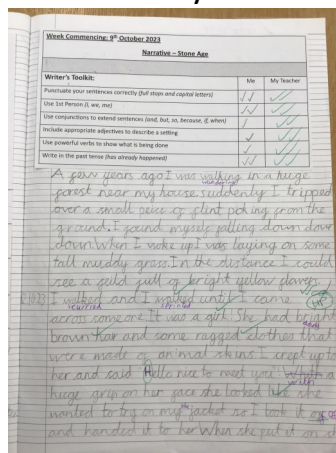 Week Commencing: 9th October 2023
Narrative – Stone Age
Writer's Toolkit:
Me
My Teacher
Punctuate your sentences correctly (full stops and capital letters)
Use 1st Person (I, we, me)
Use conjunctions to extend sentences (and, but, so, because, if, when)
Include appropriate adjectives to describe a setting
Use powerful verbs to show what is being done
Write in the past tense (has already happened)
A few years ago I was walking in a huge
wandering
forest near my house. suddenly I tripped
over a small peice of flint poking from the
ground. I found myself falling down down
down. When I woke up I was laying on some
tall muddy grass. In the distance I could
see a feild full of bright yellow flowers.
I walked and I walked until I came
HP
across someone. It was a girl. She had bright
brown hair and some ragged clothes that
were made of animal skins. I crept up to
her and said Hello nice to meet you.
with
huge grin on her face she looked like she
wanted to try on my jacket so I took it off
and handed it to her. When she put it on